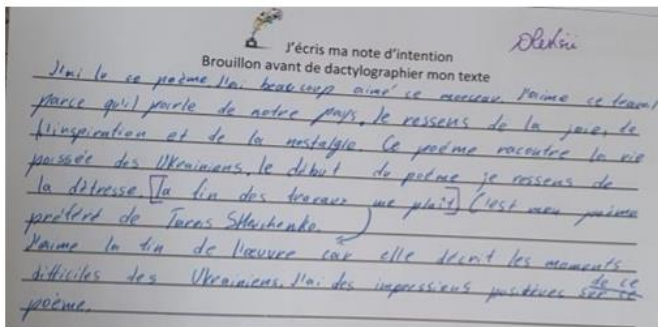 J'écris ma note d'intention
Oleksii
Brouillon avant de dactylographier mon texte
J'ai lu ce poème. J'ai beaucoup aimé ce morceau. J'aime ce travail
parce qu'il parle de notre pays. Je ressens de la joie, de
l'inspiration et de la nostalgie. Ce poème racontre la vie
passée des Ukrainiens. le début du poème je ressens de
la détresse. [la fin des travaux me plaît] C'est mon poème
préféré de Taras Shevchenko.
J'aime la fin de l'œuvre car elle décrit les moments
difficiles des Ukrainiens. J'ai des impressions positives sur ce de ce
poème.